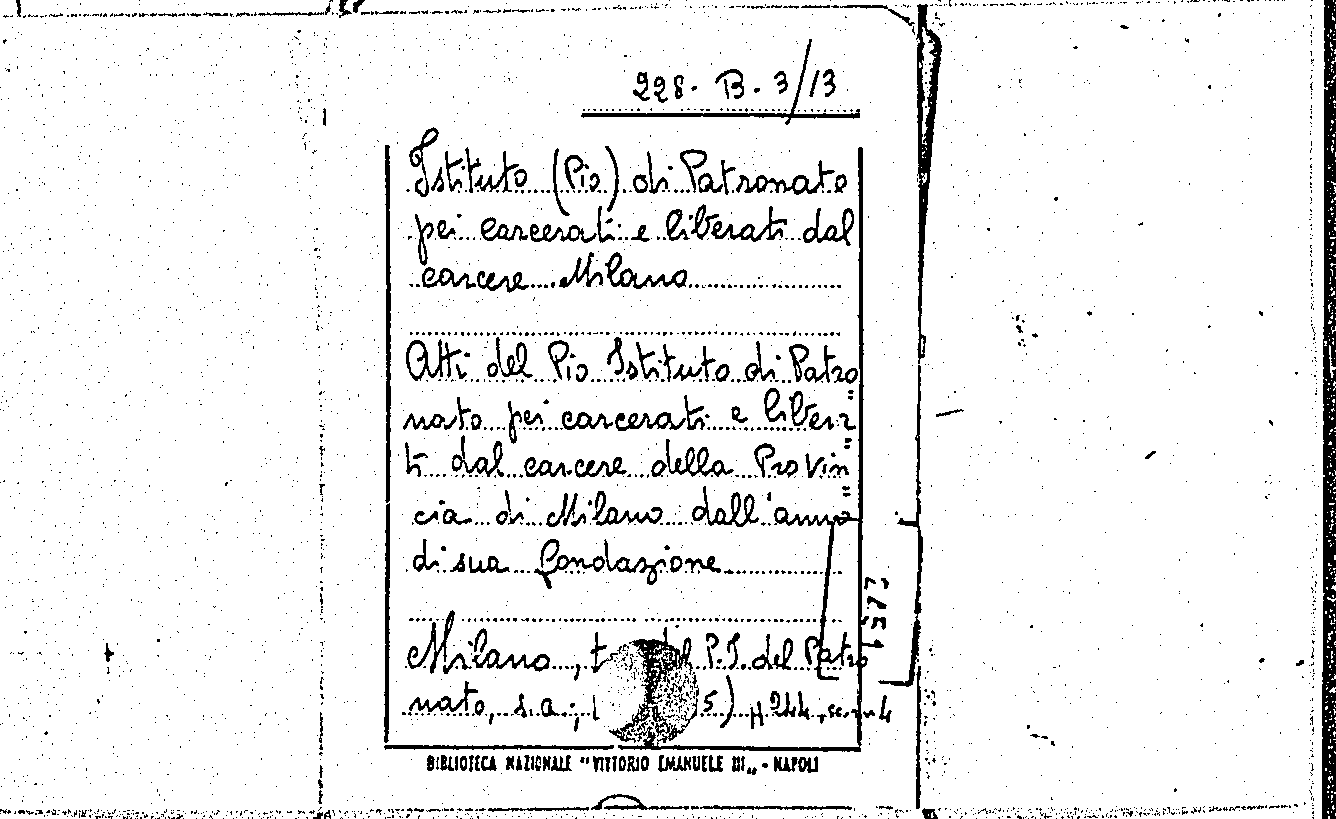 228. B. 3/13
Istituto (Pio) di Patronato
pei carcerati e liberati dal
carcere Milano
Atti del Pio Istituto di Patro
nato pei carcerati e libera
ti dal carcere della Provin
cia di Milano dall'anno
di sua fondazione
Milano, t del P.I. del Patro
nato, s.a; 5) p 244,
BIBLIOTECA NAZIONALE "VITTORIO EMANUELE III„ - NAPOLI